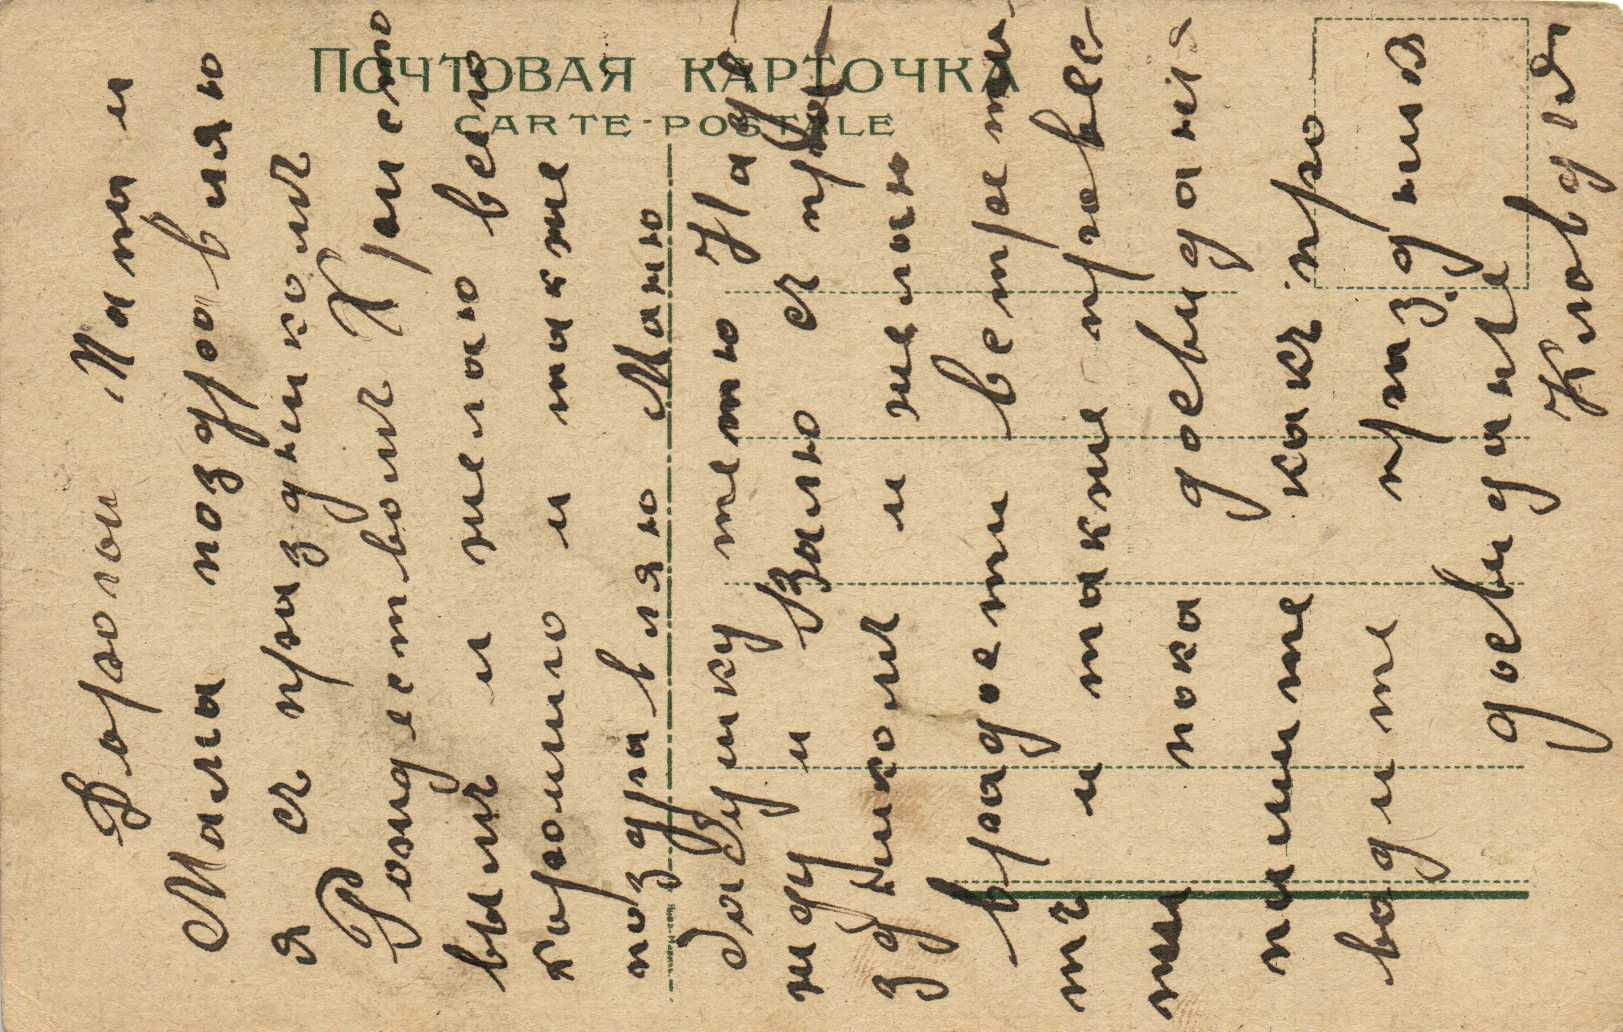 ПОЧТОВАЯ КАРТОЧКА
CARTE-POSTALE
Дорогои Папа и
Мама поздровляю
я съ празникомъ
Рождествомъ Христо
вымъ и желаю всего
хорошиго и также
поздравляю Маню
бабушку тетю Наде-
жду и Валю съ пра-
здникомъ и желаю
врадости встрети-
тъ и также провес-
ти пока досвидания
пишите какъ про
водите празднив
досвидание
Клавдия